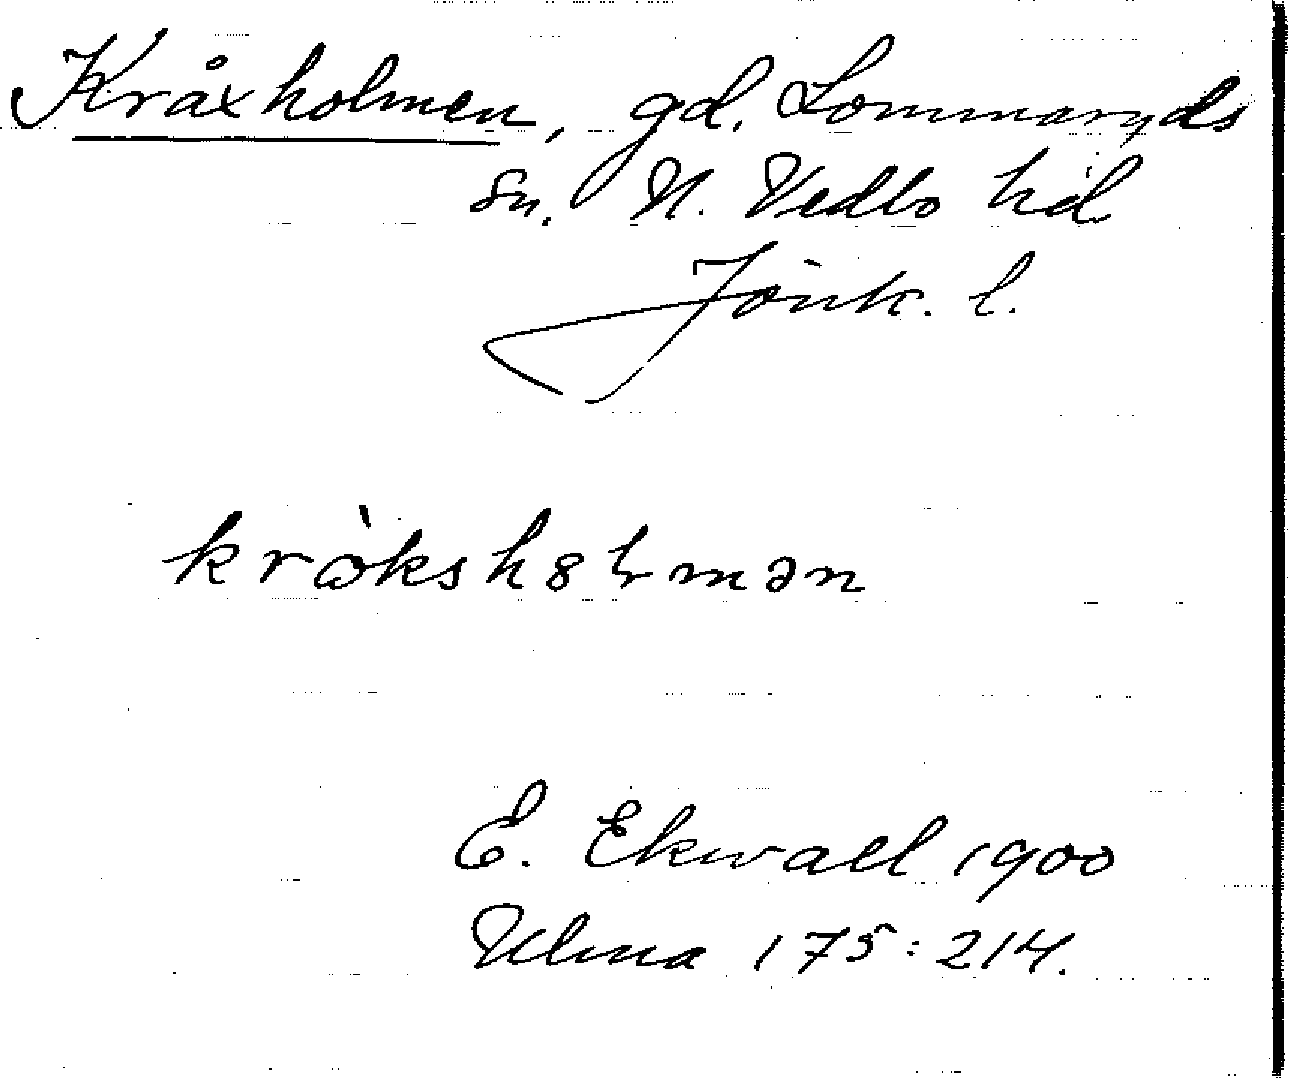 Kråxholmen, gd. Lommaryds
sn. N. Vedbo hd
Jönk. l.
kråksh8lmən
E. Ekwall 1900
Ulma 175:214.